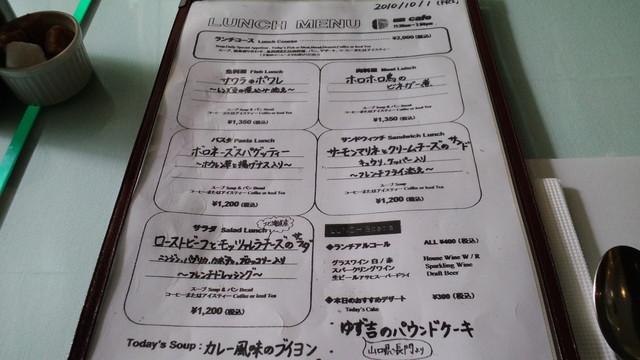 2010/10/1
LUNCH MENU
cafe
ランチコース Lunch Course ¥2,000(税込)
魚料理 Fish Lunch
サワラのポワレ
スープ Soup & パン Bread
コーヒーまたはアイスティー Coffee or Iced Tea
¥1,350(税込)
肉料理 Meat Lunch
ホロホロ鳥の
ビネガー煮
スープ Soup & パン Bread
コーヒーまたはアイスティー Coffee or Iced Tea
¥1,350(税込)
パスタ Pasta Lunch
ボロネーズスパゲッティー
〜ホウレン草と揚げナス入り〜
スープ Soup & パン Bread
コーヒーまたはアイスティー Coffee or Iced Tea
¥1,200(税込)
サンドウィッチ Sandwich Lunch
サーモンマリネとクリームチーズのサンド
キュウリ、ケッパー入り
〜フレンチフライ添え〜
スープ Soup
コーヒーまたはアイスティー Coffee or Iced Tea
¥1,200(税込)
サラダ Salad Lunch
ローストビーフとモッツァレラチーズのサラダ
ニンジン、パプリカ、カボチャ、ブロッコリー入り
〜フレンチドレッシング〜
スープ Soup & パン Bread
コーヒーまたはアイスティー Coffee or Iced Tea
¥1,200(税込)
◆ランチアルコール ALL ¥400(税込)
グラスワイン 白/赤 House Wine W/R
スパークリングワイン Sparkling Wine
生ビール アサヒスーパードライ Draft Beer
◆本日のおすすめデザート ¥300(税込)
Today's Cake
ゆず吉のパウンドケーキ
山口県長門より
Today's Soup: カレー風味のブイヨン